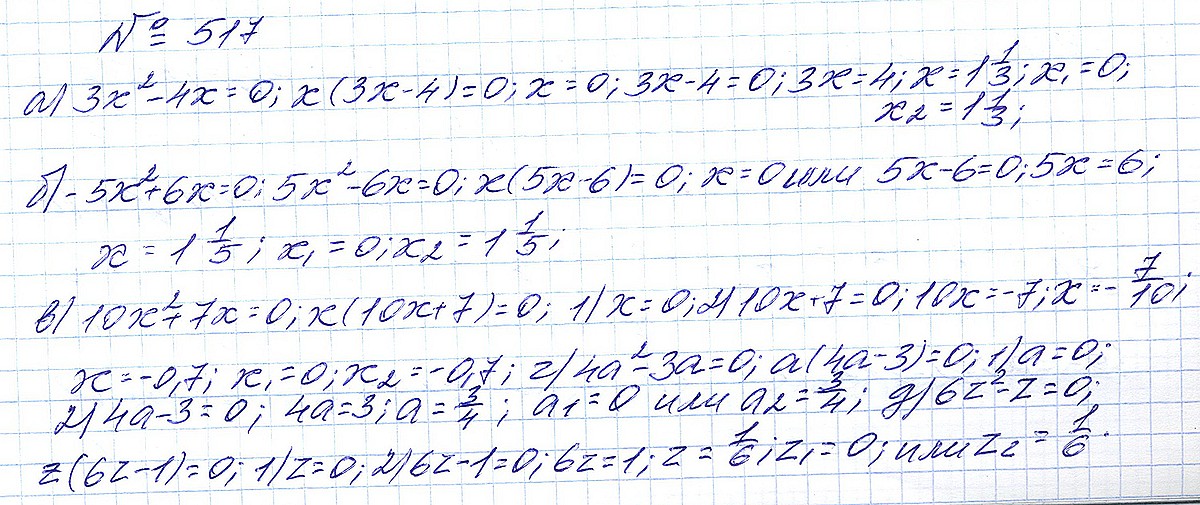 № 517
а) 3x² - 4x = 0; x(3x-4) = 0; x = 0; 3x-4 = 0; 3x = 4; x = 1 1/3; x₁ = 0;
x₂ = 1 1/3;
б) -5x² + 6x = 0; 5x² - 6x = 0; x(5x-6) = 0; x = 0 или 5x-6 = 0; 5x = 6;
x = 1 1/5; x₁ = 0; x₂ = 1 1/5;
в) 10x² + 7x = 0; x(10x+7) = 0; 1) x = 0; 2) 10x+7 = 0; 10x = -7; x = -7/10;
x = -0,7; x₁ = 0; x₂ = -0,7; г) 4a² - 3a = 0; a(4a-3) = 0; 1) a = 0;
2) 4a-3 = 0; 4a = 3; a = 3/4; a₁ = 0 или a₂ = 3/4; д) 6z² - z = 0;
z(6z-1) = 0; 1) z = 0; 2) 6z-1 = 0; 6z = 1; z = 1/6; z₁ = 0; или z₂ = 1/6.